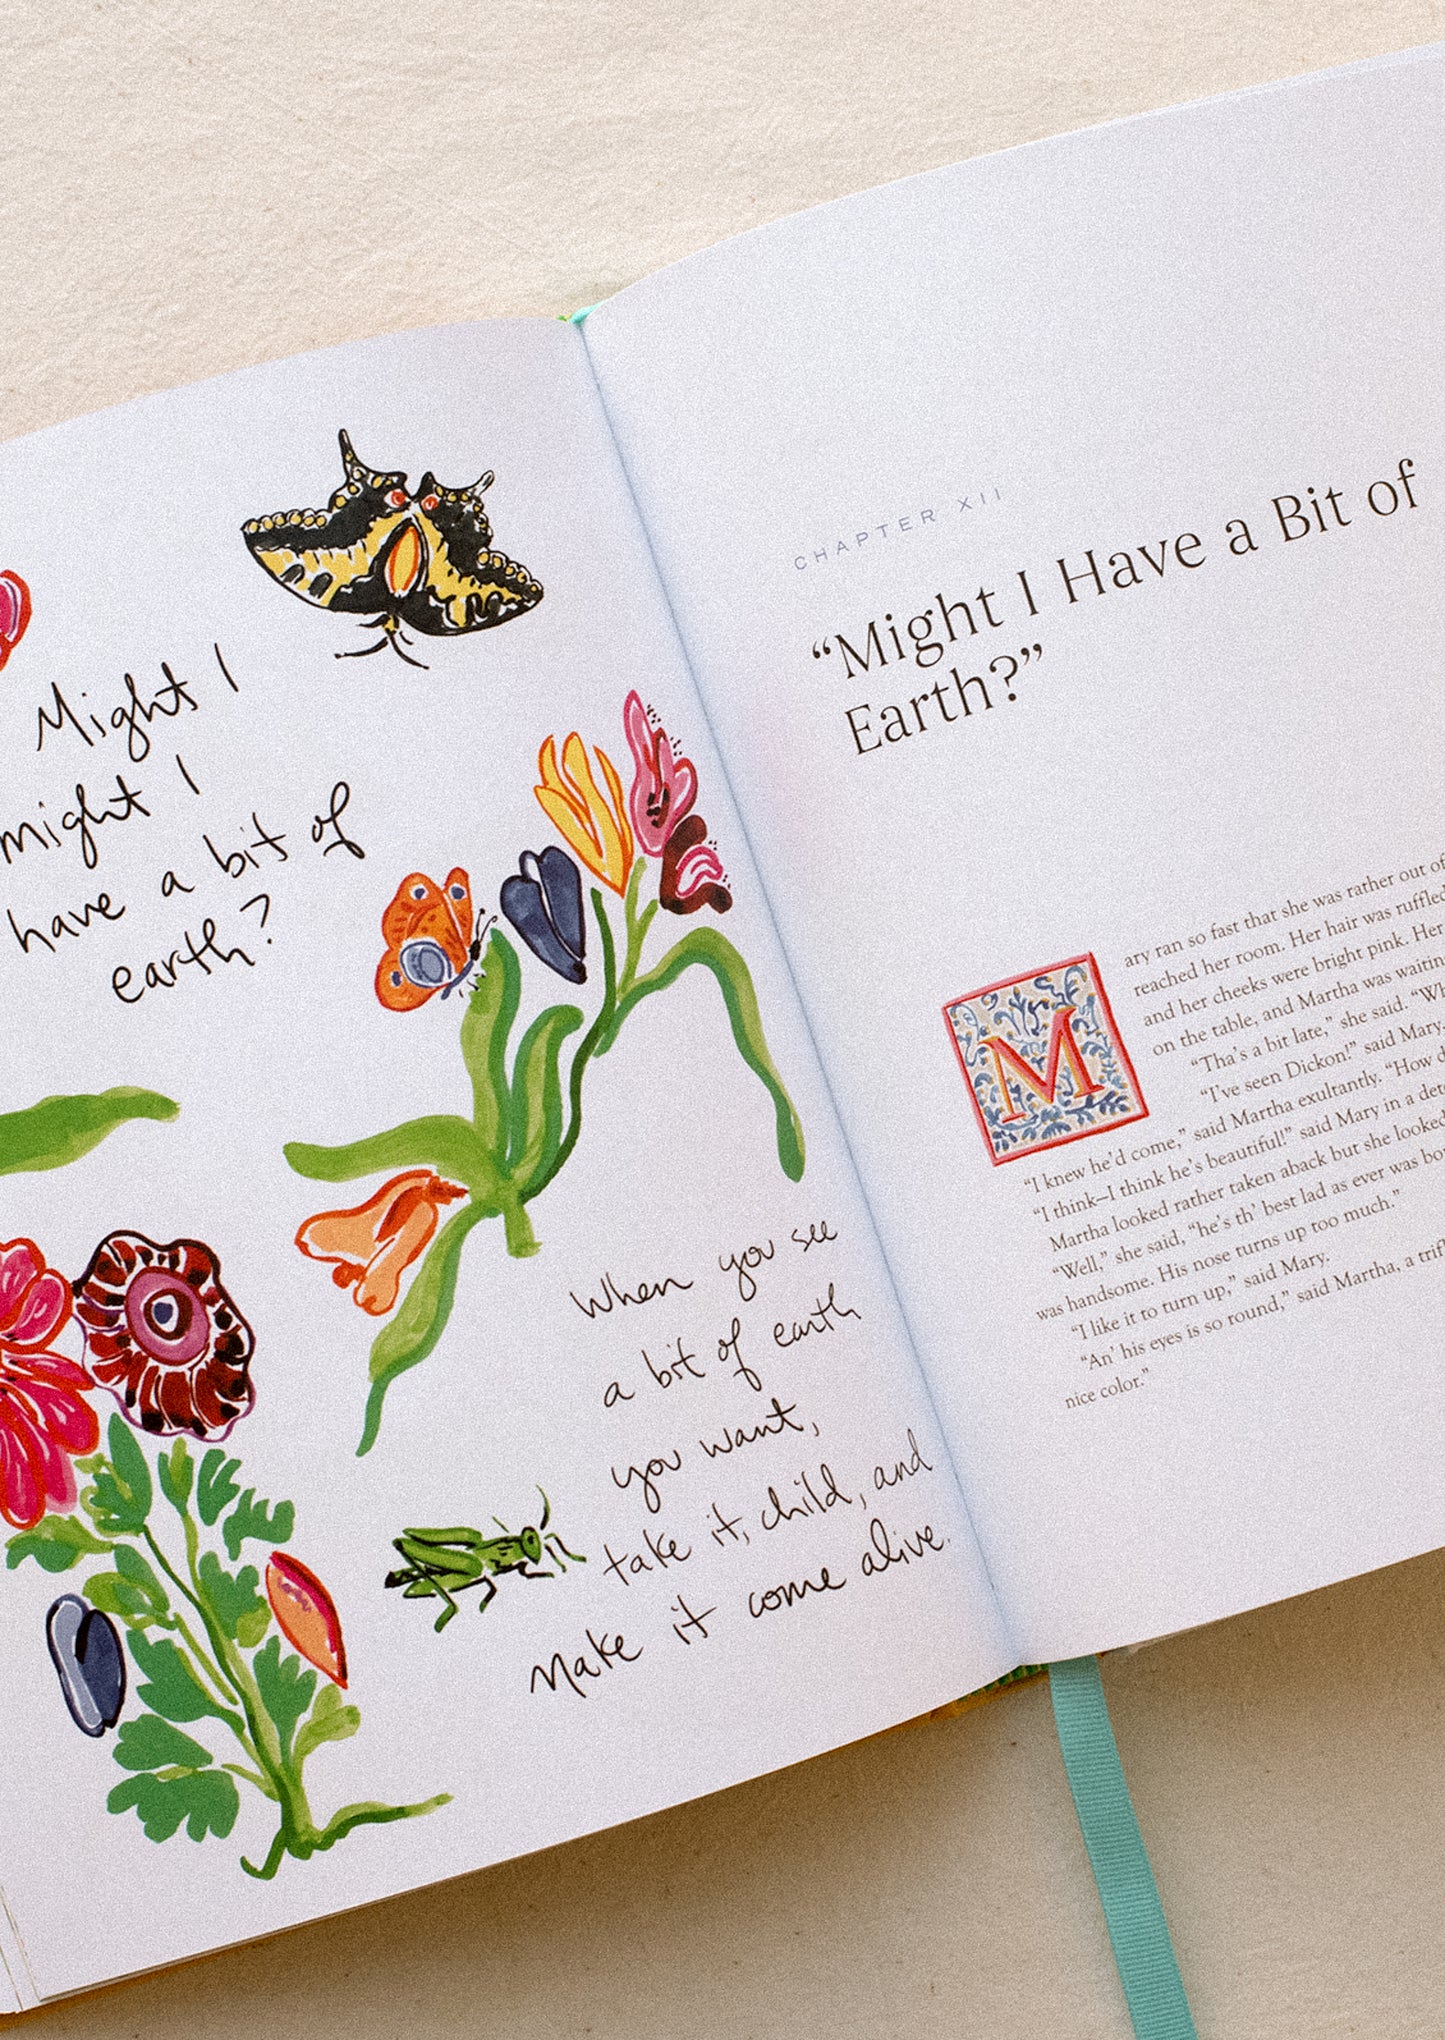 Might I
might I
have a bit of
earth?
When you see
a bit of earth
you want,
take it, child, and
make it come alive.
CHAPTER XII
“Might I Have a Bit of
Earth?”
Mary ran so fast that she was rather out of
reached her room. Her hair was ruffled
and her cheeks were bright pink. Her
on the table, and Martha was waitin
“Tha’s a bit late,” she said. “Wh
“I’ve seen Dickon!” said Mary.
“I knew he’d come,” said Martha exultantly. “How d
“I think—I think he’s beautiful!” said Mary in a dete
Martha looked rather taken aback but she looked
“Well,” she said, “he’s th’ best lad as ever was bo
was handsome. His nose turns up too much.”
“I like it to turn up,” said Mary.
“An’ his eyes is so round,” said Martha, a trifl
nice color.”